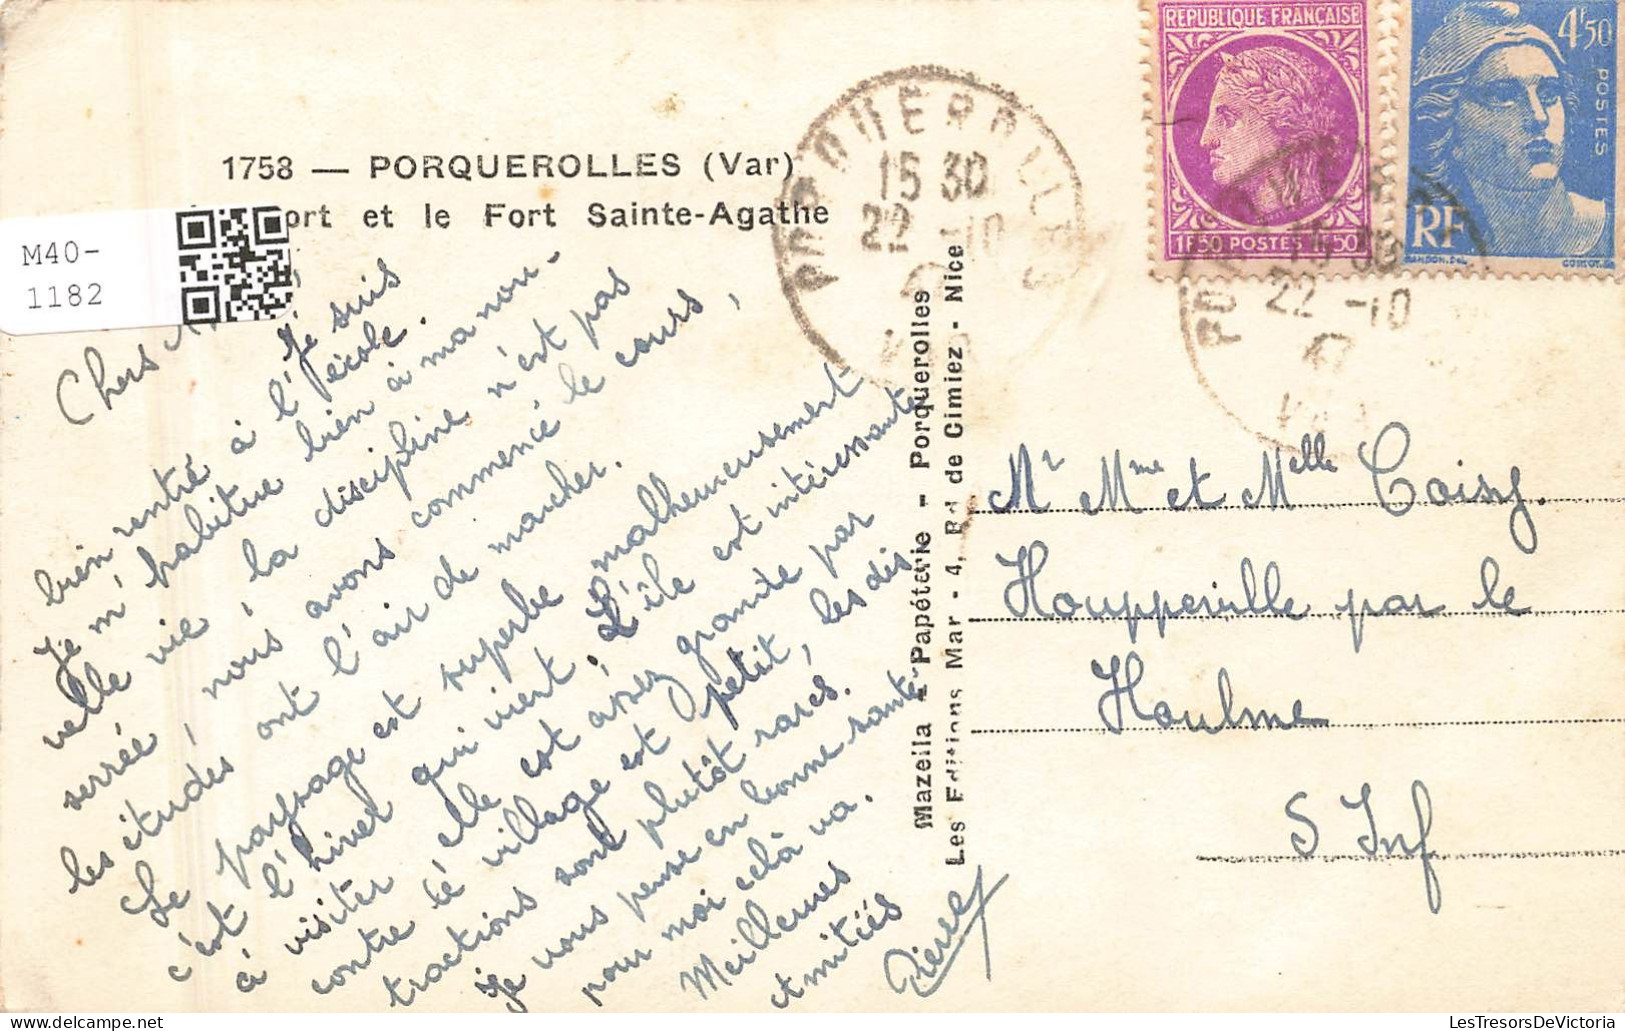 1758 — PORQUEROLLES (Var)
ort et le Fort Sainte-Agathe
M40-
1182
Chers
Je suis
bien rentré à l'école.
Je m'habitue bien à ma nou-
velle vie, la discipline n'est pas
serrée, nous avons commencé le cours,
les études ont l'air de marcher.
Le paysage est superbe malheureusement
c'est l'hiver qui vient, L'île est intéressante
à visiter elle est assez grande par
contre le village est petit, les dis
tractions sont plutôt rares.
Je vous pense en bonne santé
pour moi celà va.
Meilleures
Amitiés
Pierre
Mazella - Papéterie - Porquerolles
Les Editions Mar - 4, Bd de Cimiez - Nice
PORQUEROLLES
15 30
22 -10
47
VAR
REPUBLIQUE FRANÇAISE
1F50 POSTES 1F50
4F50
POSTES
RF
GANDON.DEL
15 30
22 -10
47
VAR
Mr Mme et Melle Coisy.
Houpperville par le
Houlme
S Inf
LesTresorsDeVictoria